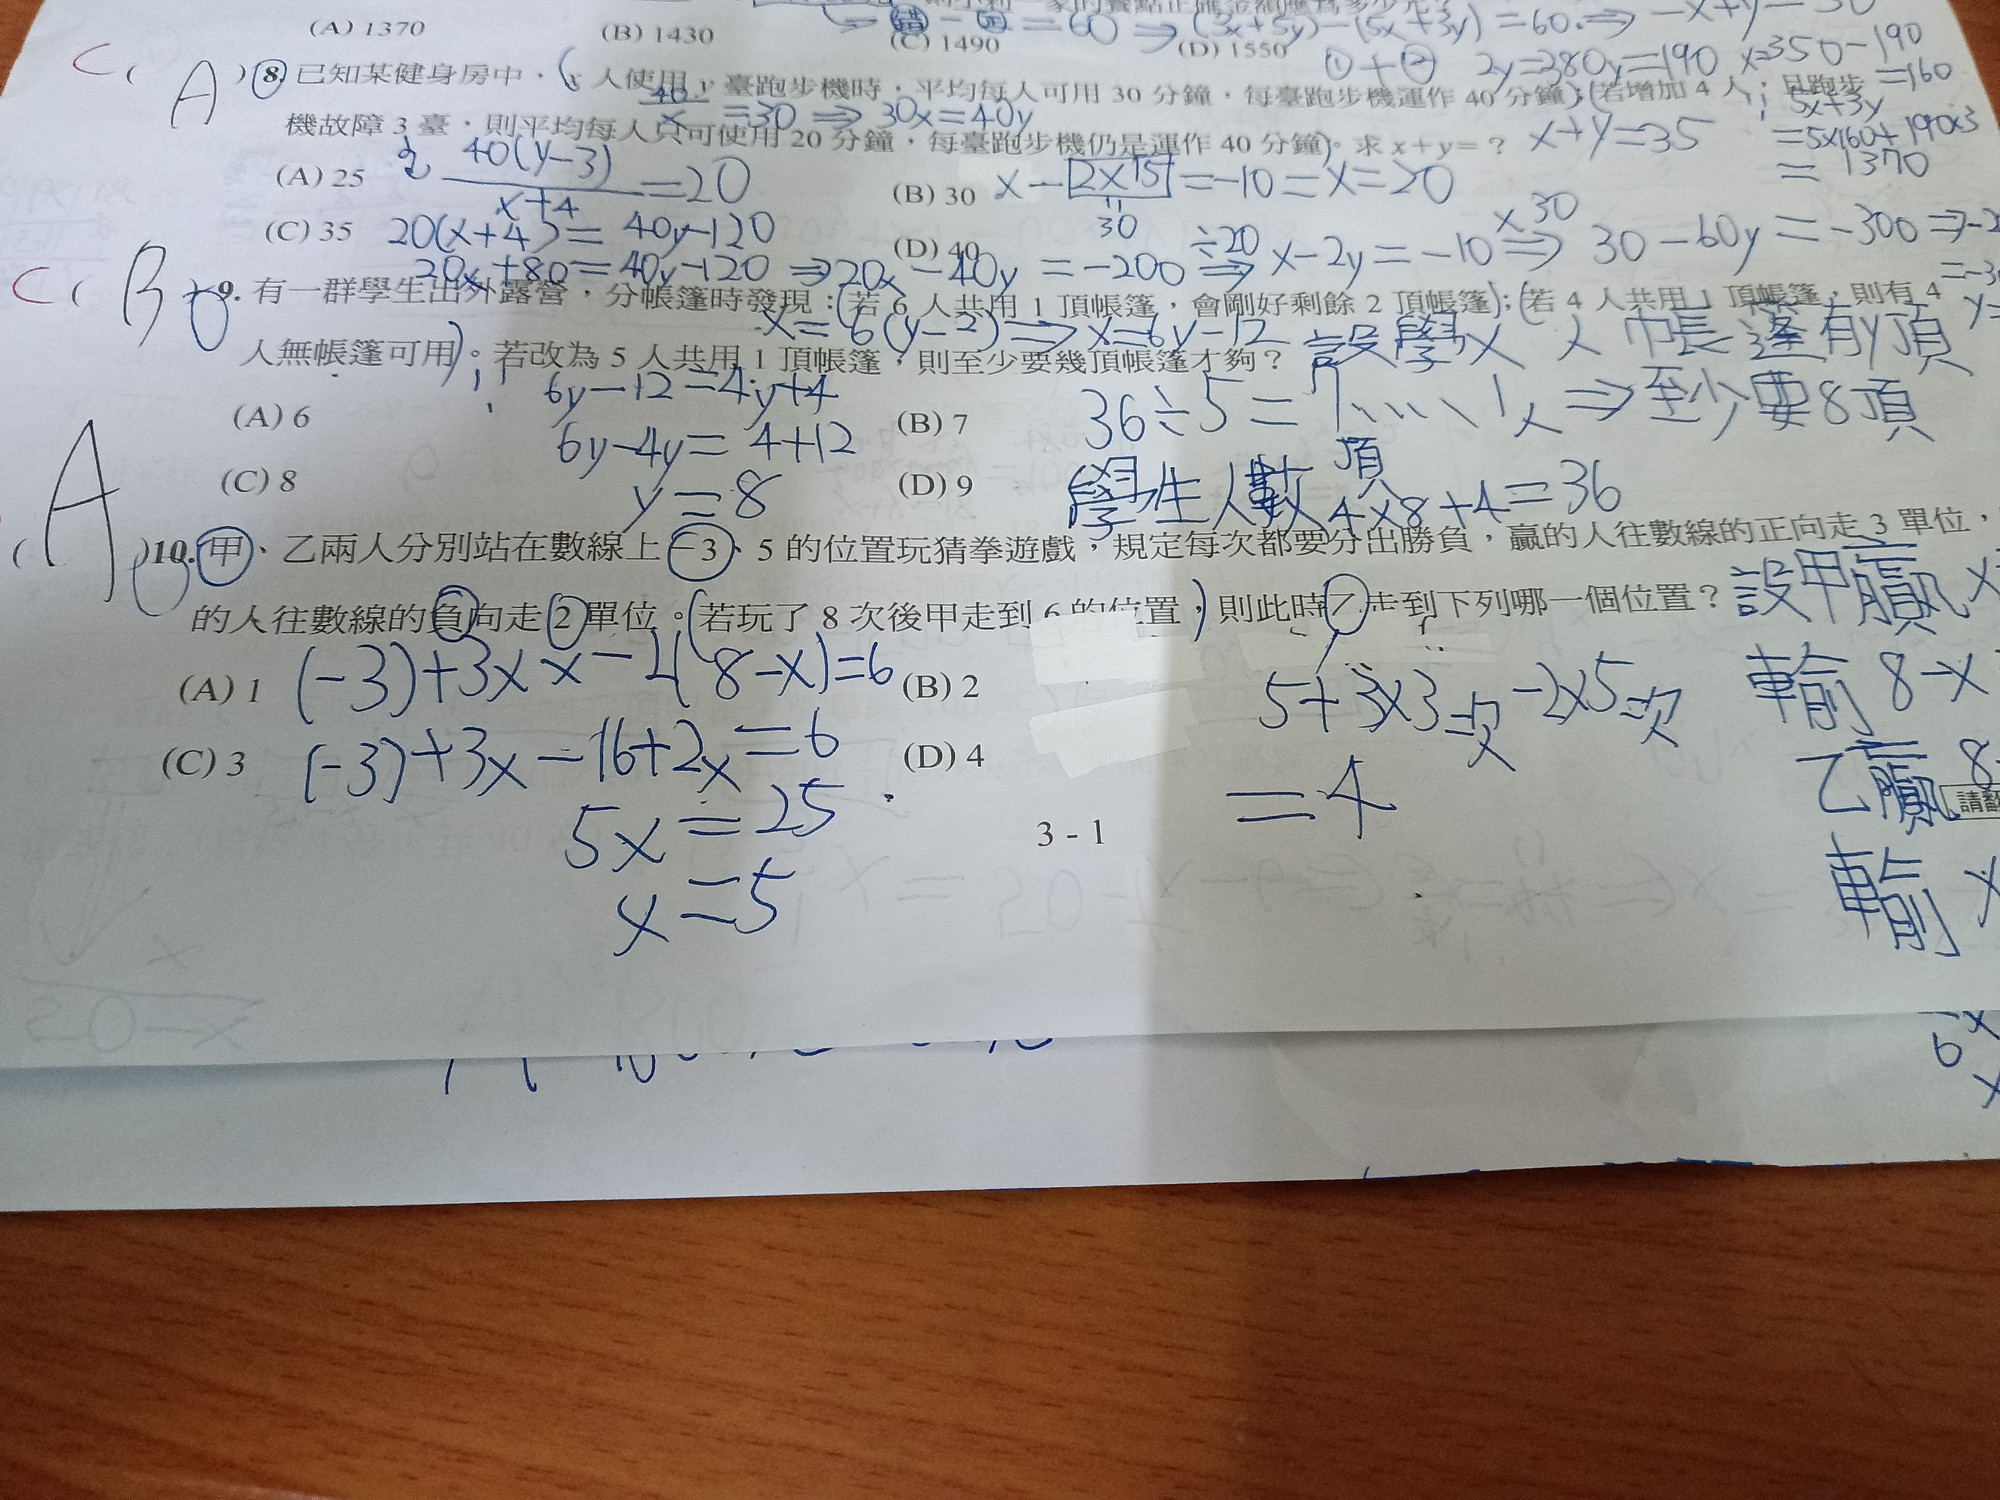 (A) 1370 (B) 1430 (C) 1490 (D) 1550
= 60 ⇒ (3x+5y)-(5x+3y)=60 ⇒ -x+y=30
①+② 2y=380 y=190 x=350-190
=160
C ( A )8. 已知某健身房中，x 人使用 y 臺跑步機時，平均每人可用 30 分鐘，每臺跑步機運作 40 分鐘；若增加 4 人，且跑步
=30 ⇒ 30x=40y
5x+3y
機故障 3 臺，則平均每人只可使用 20 分鐘，每臺跑步機仍是運作 40 分鐘。求 x+y=？ x+y=35
=5x160+190x3
=1370
(A) 25 40(y-3) / x+4 =20
(B) 30 x-2x15=-10=x=20
30
(C) 35 20(x+4)=40y-120
(D) 40
÷20 x-2y=-10 ⇒ x30 30-60y=-300
20x+80=40y-120 ⇒ 20x-40y=-200 ⇒
C ( B )9. 有一群學生出外露營，分帳篷時發現：若 6 人共用 1 頂帳篷，會剛好剩餘 2 頂帳篷；若 4 人共用 1 頂帳篷，則有 4
x=6(y-2) ⇒ x=6y-12 設學x人 帳蓬有y頂
人無帳篷可用。若改為 5 人共用 1 頂帳篷，則至少要幾頂帳篷才夠？
6y-12=4y+4
(A) 6 (B) 7 36÷5=7……1人 ⇒ 至少要8頂
頂
6y-4y=4+12
(C) 8 (D) 9 學生人數 4x8+4=36
y=8
( A )10. 甲、乙兩人分別站在數線上 -3、5 的位置玩猜拳遊戲，規定每次都要分出勝負，贏的人往數線的正向走 3 單位，
的人往數線的負向走 2 單位。若玩了 8 次後甲走到 6 的位置，則此時乙走到下列哪一個位置？ 設甲贏x
(A) 1 (-3)+3xx-2(8-x)=6 (B) 2 5+3x3次-2x5次 輸8-x
(C) 3 (-3)+3x-16+2x=6 (D) 4 =4 乙贏8-
請翻
5x=25
3 - 1
x=5 輸x